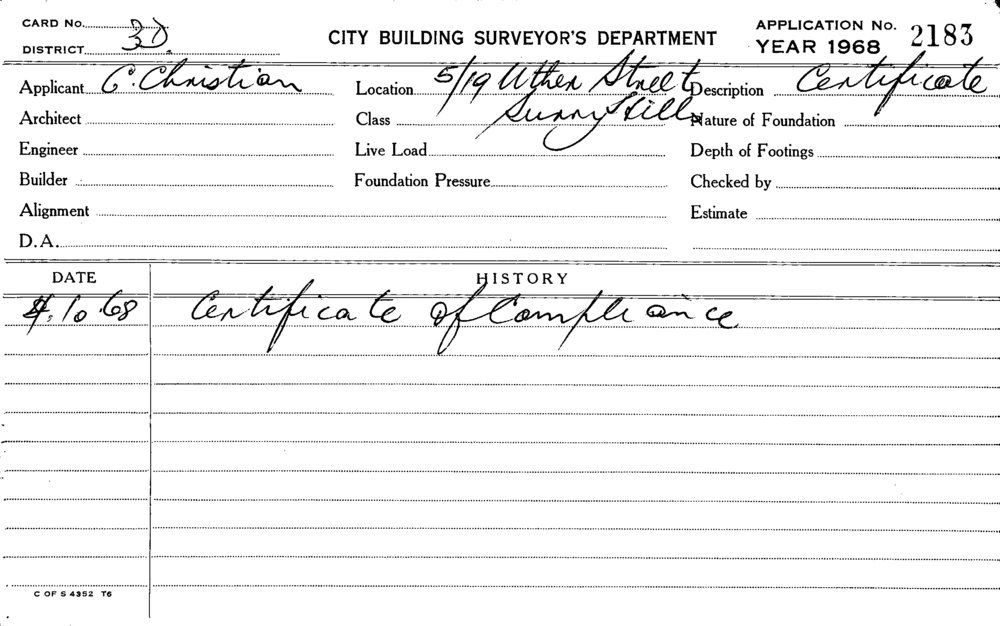 CARD No. 3D.
DISTRICT
CITY BUILDING SURVEYOR'S DEPARTMENT
APPLICATION No. 2183
YEAR 1968
Applicant C. Christian
Location 5/19 Uther Street
Description Certificate
Architect
Class Surry Hills
Nature of Foundation
Engineer
Live Load
Depth of Footings
Builder
Foundation Pressure
Checked by
Alignment
Estimate
D.A.
DATE HISTORY
4.10.68 Certificate of Compliance
C OF S 4352 T6